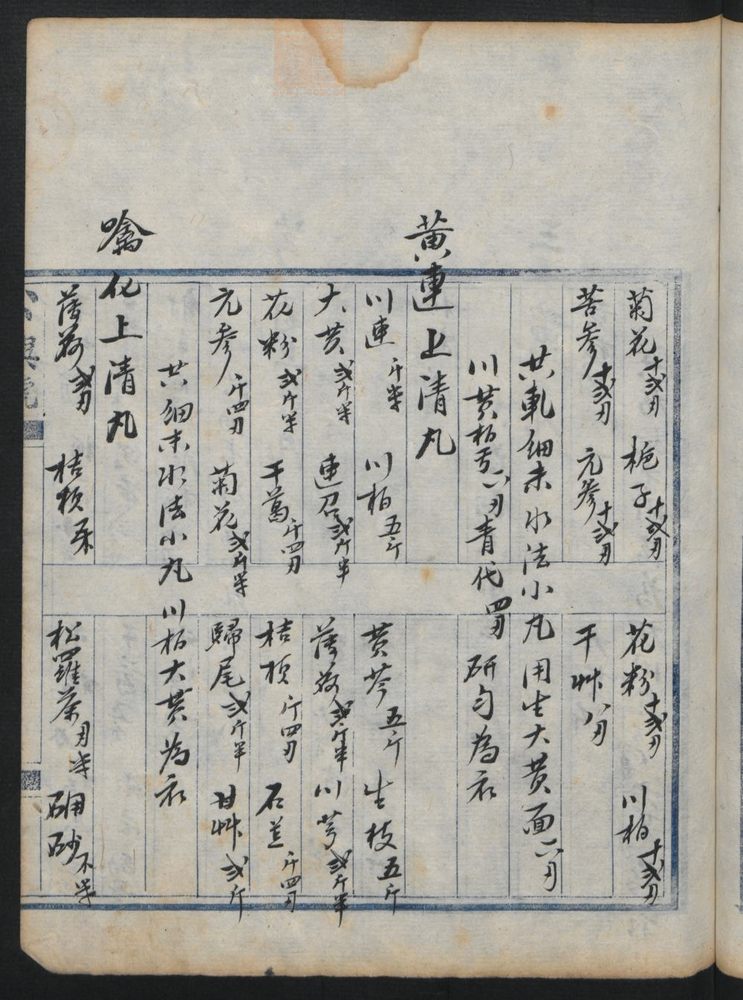 菊花十弍刄 梔子十弍刄 花粉十弍刄 川柏十弍刄
苦參十弍刄 元參十弍刄 干艸八刄
共軋細末水法小丸用生大黄面六刄
川黄柏面六刄青代四刄研匀為衣
黄連上清丸
川連斤半 川柏五斤 黄芩五斤 生枝五斤
大黄弍斤半 連召弍斤半 薄荷弍斤半 川芎弍斤半
花粉弍斤半 干葛斤四刄 桔梗斤四刄 石羔斤四刄
元參斤四刄 菊花弍斤半 歸尾弍斤半 甘艸弍斤
共細末水法小丸川柏大黄為衣
噙化上清丸
薄荷弍刄 桔梗 松羅茶刄半 硼砂不半